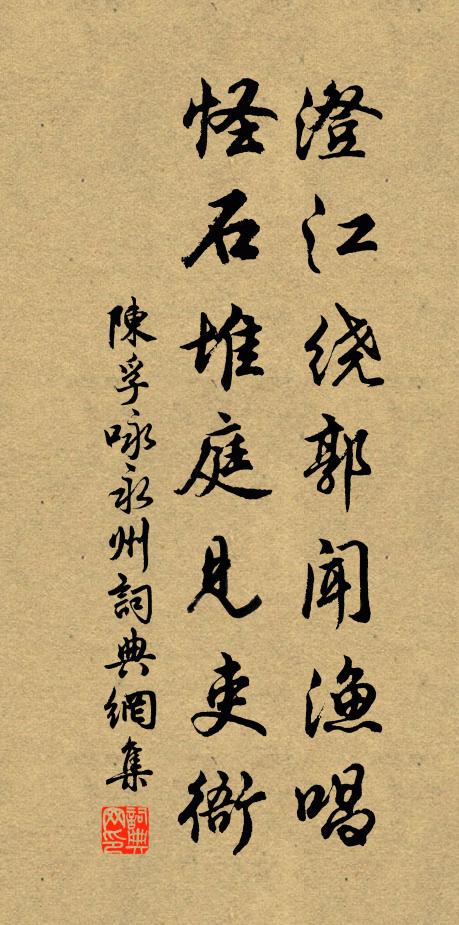 澄江绕郭闻渔唱
怪石堆庭见吏衙
陳孚咏永州詞典網集
詞典网印